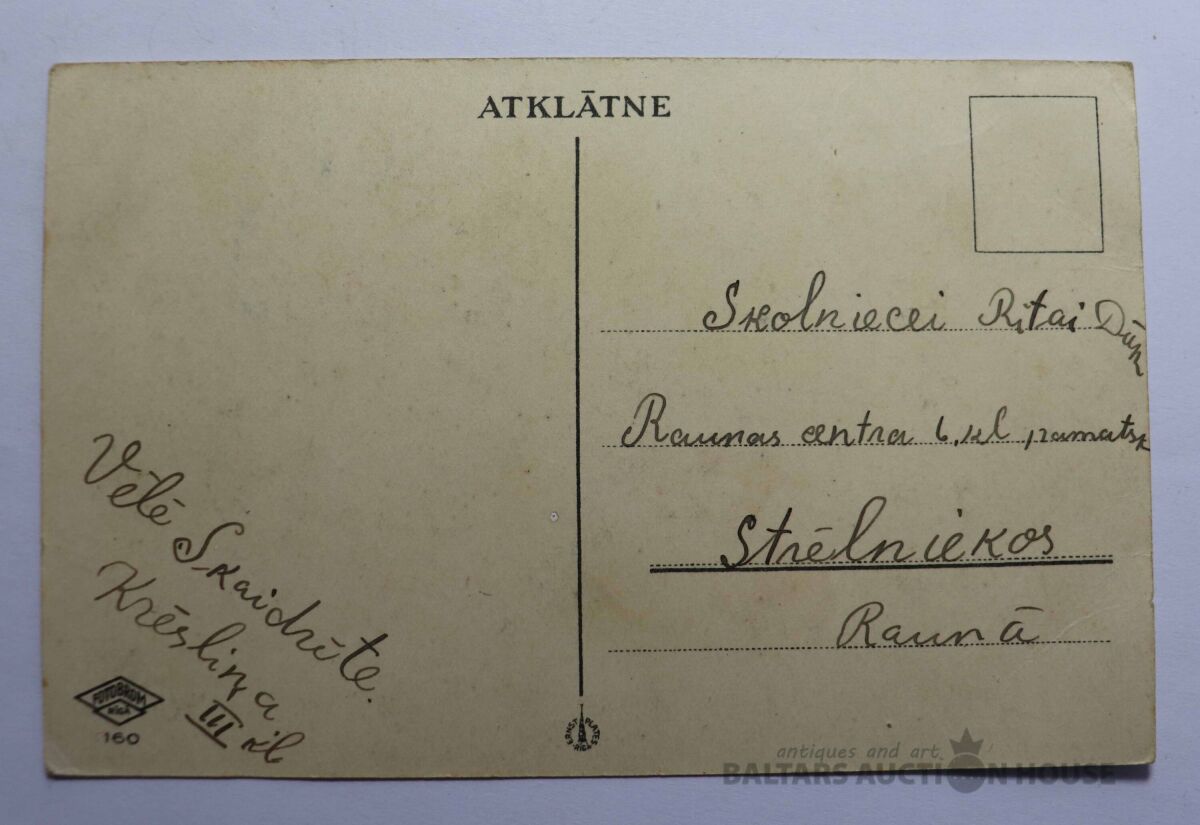 ATKLĀTNE
Skolniecei Ritai Dūk
Raunas centra 6. kl. pamatsk
Strēlniekos
Raunā
Vēlē Skaidrīte.
Krēsliņa
III kl
FOTOBROM
RĪGA
160
ERNST PLATES
RĪGA
antiques and art
BALTARS AUCTION HOUSE